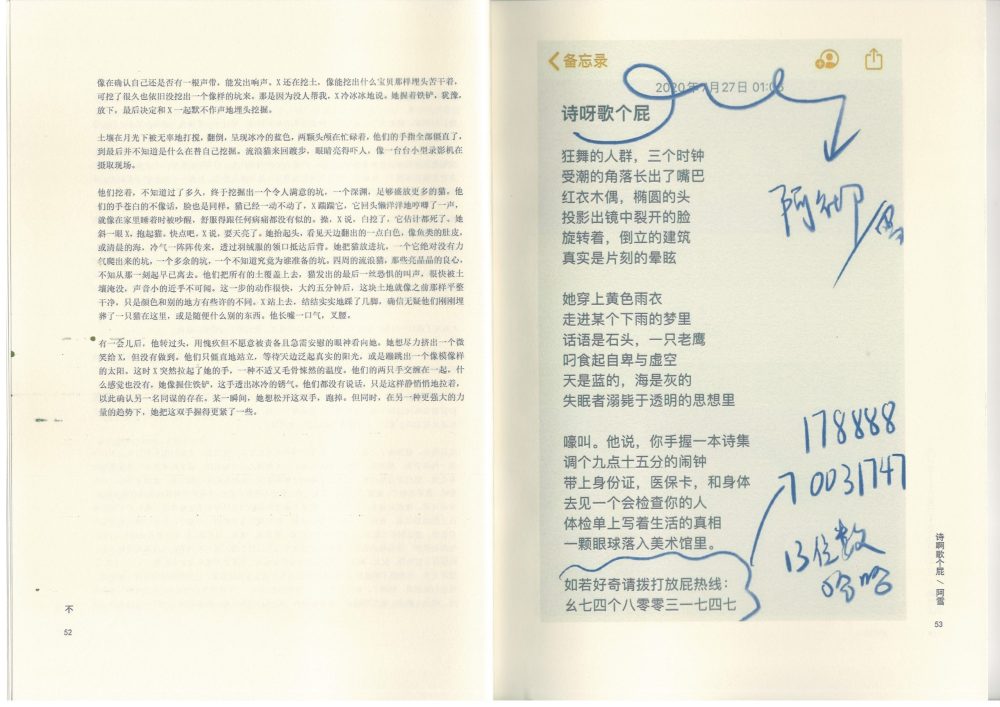 像在确认自己还是否有一根声带，能发出响声。X还在挖土，像能挖出什么宝贝那样埋头苦干着，
可挖了很久也依旧没挖出一个像样的坑来，那是因为没人帮我，X冷冰冰地说。她握着铁铲，犹豫，
放下，最后决定和X一起默不作声地埋头挖掘。
土壤在月光下被无辜地打搅，翻倒，呈现冰冷的蓝色，两颗头颅在忙碌着，他们的手指全部僵直了，
到最后并不知道是什么在替自己挖掘。流浪猫来回踱步，眼睛亮得吓人，像一台台小型录影机在
摄取现场。
他们挖着，不知道过了多久，终于挖掘出一个令人满意的坑，一个深渊，足够盛放更多的猫，他
们的手苍白的不像话，脸也是同样。猫已经一动不动了，X踹踹它，它回头懒洋洋地哼唧了一声，
就像在家里睡着时被吵醒，舒服得跟任何病痛都没有似的。操，X说，白挖了，它估计都死了。她
斜一眼X，抱起猫，快点吧，X说，要天亮了。她抬起头，看见天边翻出的一点白色，像鱼类的肚皮，
或清晨的海，冷气一阵阵传来，透过羽绒服的领口抵达后背。她把猫放进坑，一个它绝对没有力
气爬出来的坑，一个多余的坑，一个不知道究竟为谁准备的坑。四周的流浪猫，那些亮晶晶的良心，
不知从那一刻起早已离去。他们把所有的土覆盖上去，猫发出的最后一丝恐惧的叫声，很快被土
壤淹没，声音小的近乎不可闻。这一步的动作很快，大约五分钟后，这块土地就像之前那样平整
干净，只是颜色和别的地方有些许的不同。X站上去，结结实实地踩了几脚，确信无疑他们刚刚埋
葬了一只猫在这里，或是随便什么别的东西。他长嘘一口气，叉腰。
有一会儿后，他转过头，用愧疚但不愿意被责备且急需安慰的眼神看向她，她想尽力挤出一个微
笑给X，但没有做到，他们只僵直地站立，等待天边泛起真实的阳光，或是蹦跳出一个像模像样
的太阳，这时X突然拉起了她的手，一种不适又毛骨悚然的温度，他们的两只手交缠在一起，什
么感觉也没有，她像握住铁铲，这手透出冰冷的锈气。他们都没有说话，只是这样静悄悄地拉着，
以此确认另一名同谋的存在，某一瞬间，她想松开这双手，跑掉。但同时，在另一种更强大的力
量的趋势下，她把这双手握得更紧了一些。
不
52
备忘录
2020年7月27日 01:03
诗呀歌个屁
狂舞的人群，三个时钟
受潮的角落长出了嘴巴
红衣木偶，椭圆的头
投影出镜中裂开的脸
旋转着，倒立的建筑
真实是片刻的晕眩
她穿上黄色雨衣
走进某个下雨的梦里
话语是石头，一只老鹰
叼食起自卑与虚空
天是蓝的，海是灰的
失眠者溺毙于透明的思想里
嚎叫。他说，你手握一本诗集
调个九点十五分的闹钟
带上身份证，医保卡，和身体
去见一个会检查你的人
体检单上写着生活的真相
一颗眼球落入美术馆里。
如若好奇请拨打放屁热线：
幺七四个八零零三一七四七
178888
70031747
13位数
哈哈
诗啊歌个屁 / 阿雪
53